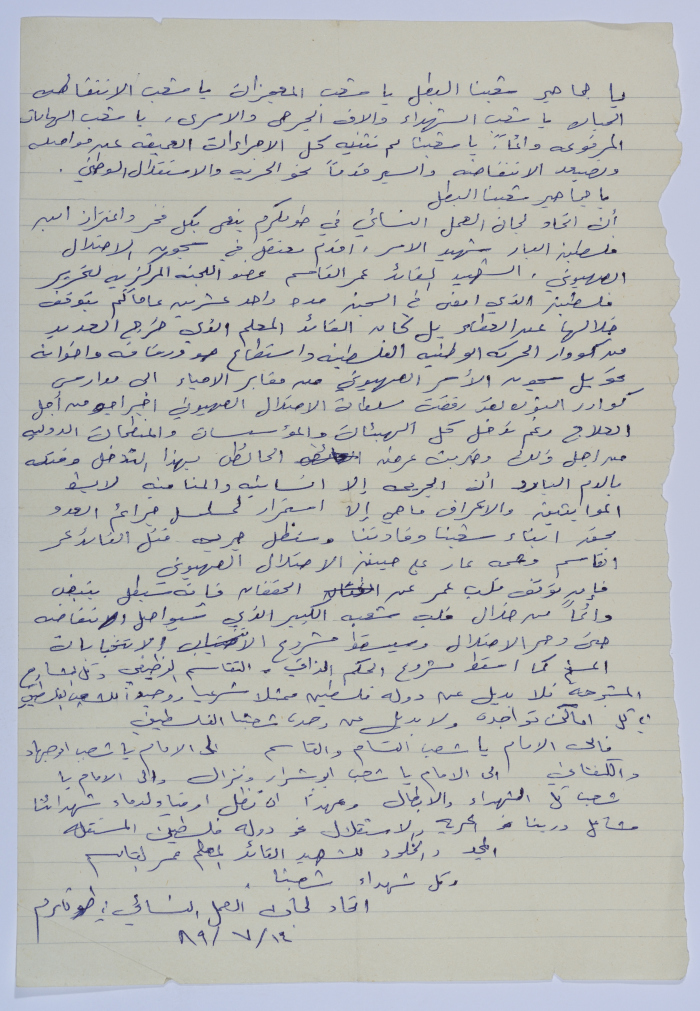 يا جماهير شعبنا البطل يا شعب المعجزات يا شعب الانتفاضه
الجباره يا شعب الشهداء والاف الجرحى والاسرى، يا شعب الهامات
المرفوعه دائماً، يا شعبنا لم تثنيه كل الاجراءات القمعيه عن مواصله
وتصعيد الانتفاضه والسير قدماً نحو الحريه والاستقلال الوطني .
يا جماهير شعبنا البطل
أن اتحاد لجان العمل النسائي في طولكرم ينعى بكل فخر واعتزاز ابن
فلسطين البار شهيد الاسر، أقدم معتقل في سجون الاحتلال
الصهيوني، الشهيد القائد عمر القاسم عضو اللجنه المركزيه لتحرير
فلسطين الذي امضى في السجن مده واحد عشرين عاماً لم يتوقف
خلالها عن العطاء بل كان القائد المعلم الذي خرج العديد
من كوادر الحركه الوطنيه الفلسطينيه واستطاع هو ورفاقه واخوانه
تحويل سجون الأسر الصهيوني من مقابر الاحياء الى مدارس
كوادر الثوره لقد رفضت سلطات الاحتلال الصهيوني اخراجه من أجل
العلاج رغم تدخل كل الهيئات والمؤسسات والمنظمات الدوليه
من اجل ذلك وضربت عرض الحائط بهذا التدخل وقتلته
بالدم البارد أن الجريمه إلا انسانيه والمنافيه لابسط
المواثيق والاعراف ماهي إلا استمرار لمسلسل جرائم العدو
بحق ابناء شعبنا وقادتنا وستظل جريمه قتل القائد عمر
القاسم وصمه عار على جبين الاحتلال الصهيوني
فإن توقف قلب عمر عن الخفقان فانه سيظل ينبض
دائماً من خلال قلب شعبه الكبير الذي سيواصل الانتفاضه
حتى دحر الاحتلال وسيسقط مشروع الانتخابات
المسخ كما اسقط مشروع الحكم الذاتي و التقاسم الوظيفي وكل المشاريع
المشبوهة فلا بديل عن دوله فلسطين ممثلا شرعيا ووحيداً للشعب الفلسطيني
في كل اماكن تواجده ولا بديل عن وحدة شعبنا الفلسطيني
فالى الامام يا شعب القسام والقاسم الى الامام يا شعب ابو جهاد
والكنفاني الى الامام يا شعب ابو شرار ونزال والى الامام يا
شعب كل الشهداء والابطال وعهداً ان تظل ارضنا ودماء شهدائنا
مشاعل دربنا نحو الحريه والاستقلال نحو دولة فلسطين المستقله
المجد والخلود للشهيد القائد المعلم عمر القاسم
وكل شهداء شعبنا .
اتحاد لجان العمل النسائي / طولكرم
٨٩/٧/١٤